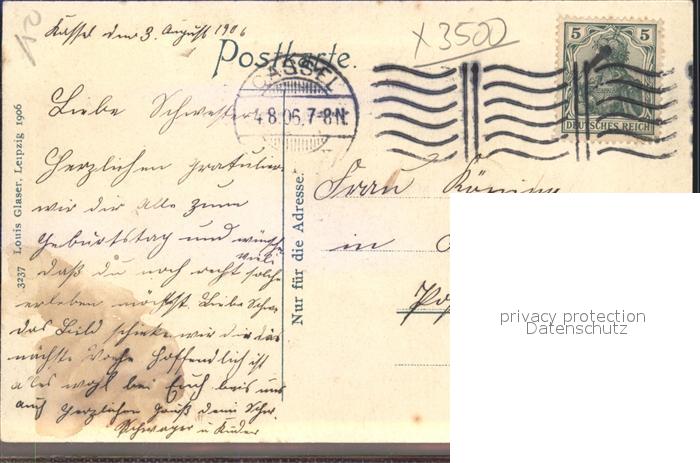 Kassel den 3. August 1906
Postkarte.
X3500
CASSEL
4.8.06.7-8N.
5 5
DEUTSCHES REICH
3237 Louis Glaser, Leipzig 1906
Nur für die Adresse.
Liebe Schwester
Herzlichen gratulieren
wir dir alle zum
Geburtstag und wünschen
viele
daß du noch recht solche
erleben möchst. Liebe Schw.
das Bild schicken wir dir das
nächste Woche hoffendlich ist
alles wohl bei Euch bei uns
auch Herzlichen Gruß deine Schw.
Schwager u Kinder
Frau König
in
privacy protection
Datenschutz